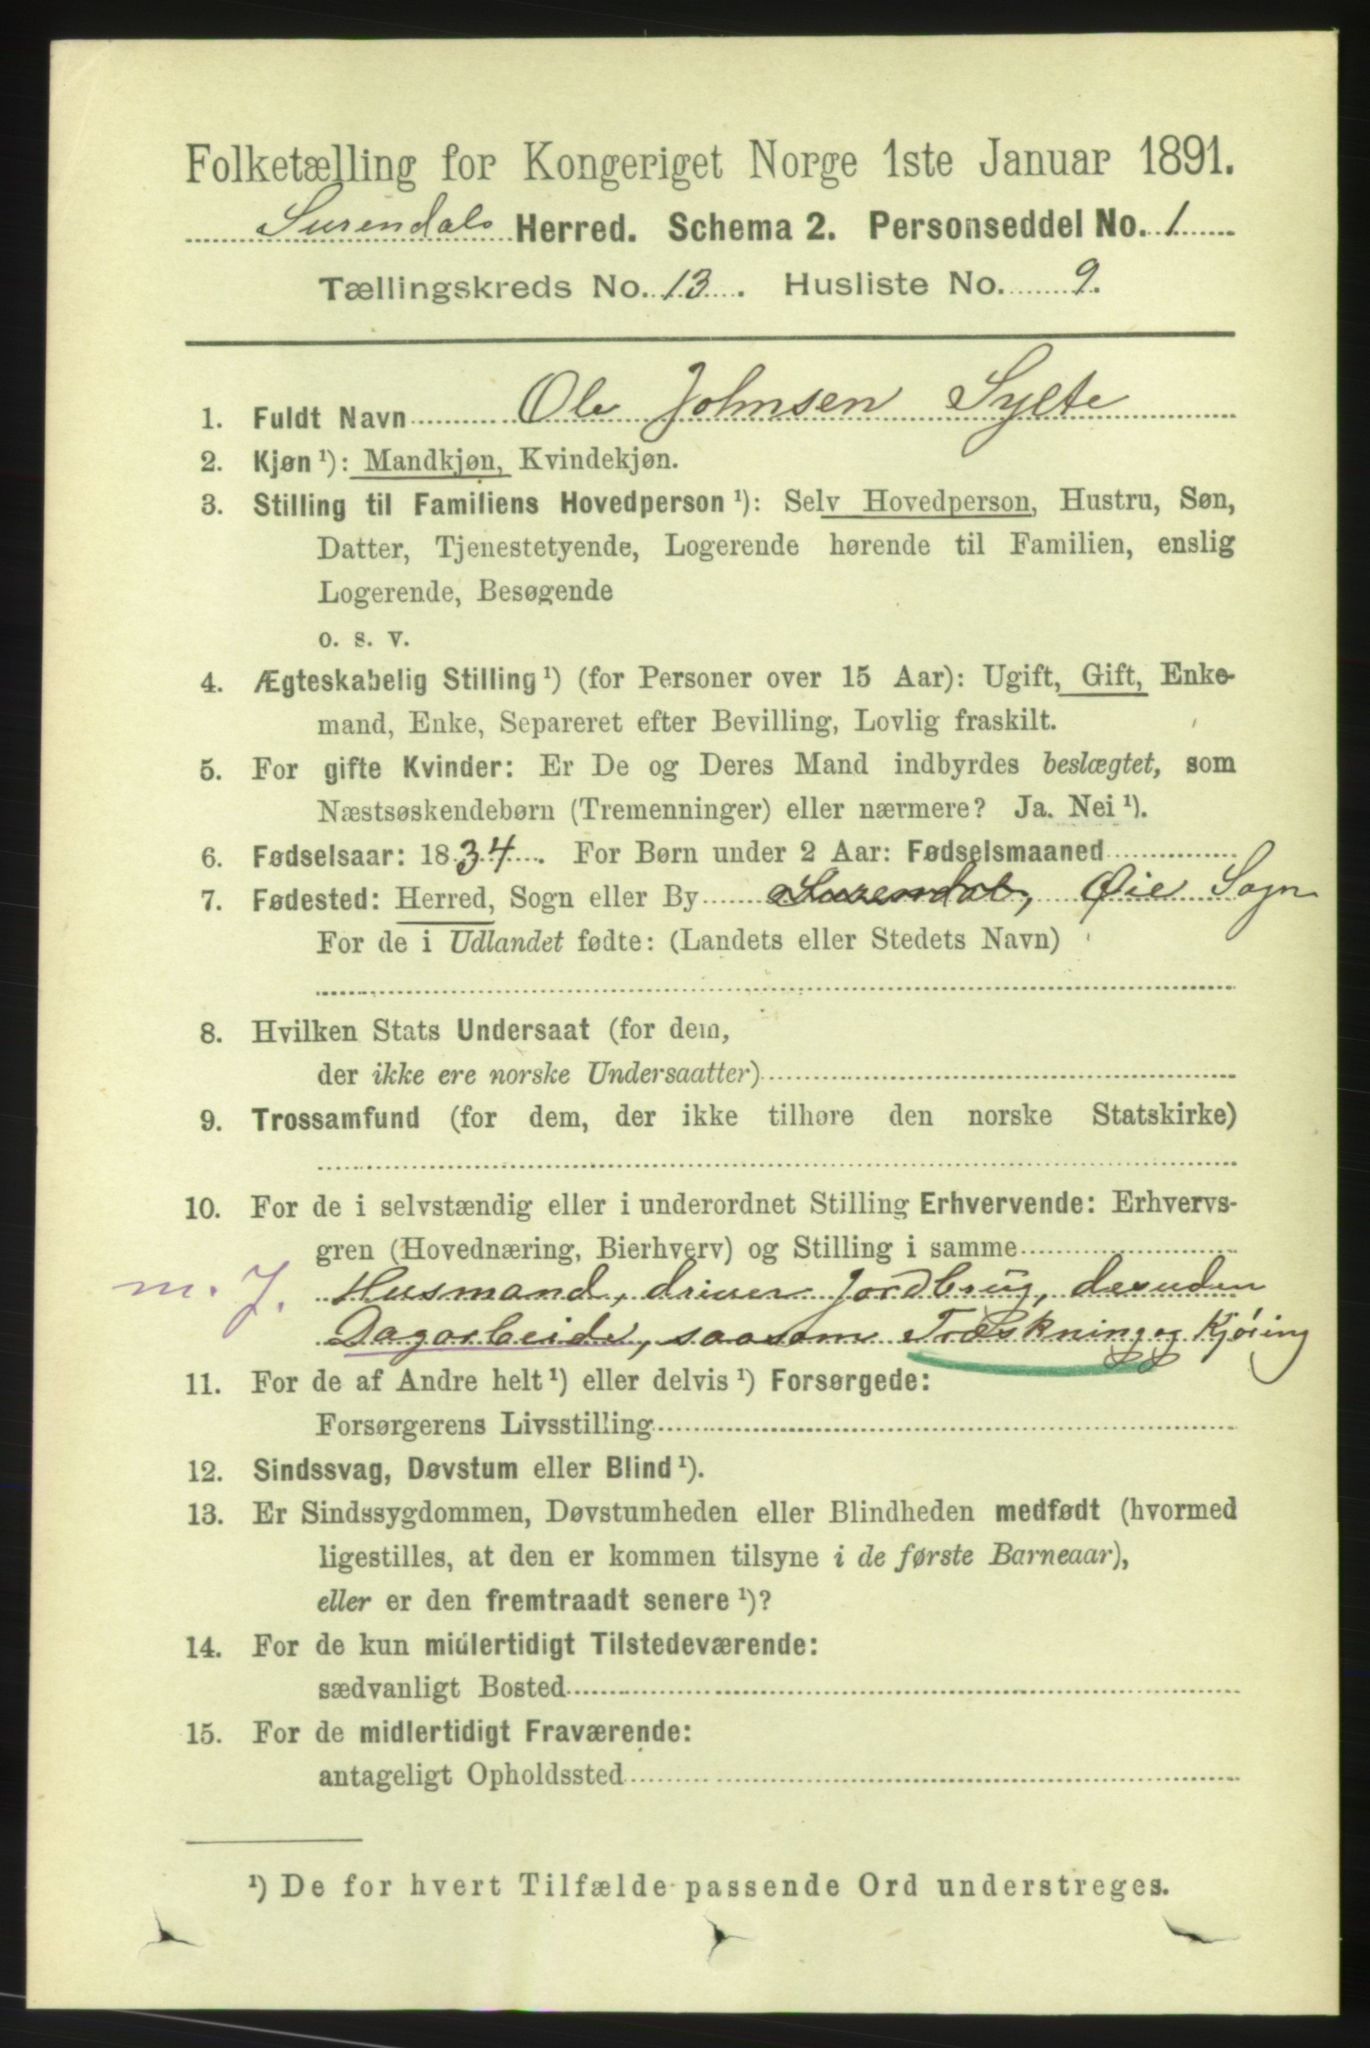 Folketælling for Kongeriget Norge 1ste Januar 1891.
Surendals Herred. Schema 2. Personseddel No. 1
Tællingskreds No. 13. Husliste No. 9.
1. Fuldt Navn Ole Johnsen Sylte
2. Kjøn ¹): Mandkjøn, Kvindekjøn.
3. Stilling til Familiens Hovedperson ¹): Selv Hovedperson, Hustru, Søn,
Datter, Tjenestetyende, Logerende hørende til Familien, enslig
Logerende, Besøgende
o. s. v.
4. Ægteskabelig Stilling ¹) (for Personer over 15 Aar): Ugift, Gift, Enke-
mand, Enke, Separeret efter Bevilling, Lovlig fraskilt.
5. For gifte Kvinder: Er De og Deres Mand indbyrdes beslægtet, som
Næstsøskendebørn (Tremenninger) eller nærmere? Ja. Nei ¹).
6. Fødselsaar: 1834. For Børn under 2 Aar: Fødselsmaaned
7. Fødested: Herred, Sogn eller By Surendal, Øie Sogn
For de i Udlandet fødte: (Landets eller Stedets Navn)
8. Hvilken Stats Undersaat (for dem,
der ikke ere norske Undersaatter)
9. Trossamfund (for dem, der ikke tilhøre den norske Statskirke)
10. For de i selvstændig eller i underordnet Stilling Erhvervende: Erhvervs-
gren (Hovednæring, Bierhverv) og Stilling i samme
m. J. Husmand, driver Jordbrug, desuden
Dagarbeide, saasom Træskning og Kjøring
11. For de af Andre helt ¹) eller delvis ¹) Forsørgede:
Forsørgerens Livsstilling
12. Sindssvag, Døvstum eller Blind ¹).
13. Er Sindssygdommen, Døvstumheden eller Blindheden medfødt (hvormed
ligestilles, at den er kommen tilsyne i de første Barneaar),
eller er den fremtraadt senere ¹)?
14. For de kun midlertidigt Tilstedeværende:
sædvanligt Bosted
15. For de midlertidigt Fraværende:
antageligt Opholdssted
¹) De for hvert Tilfælde passende Ord understreges.